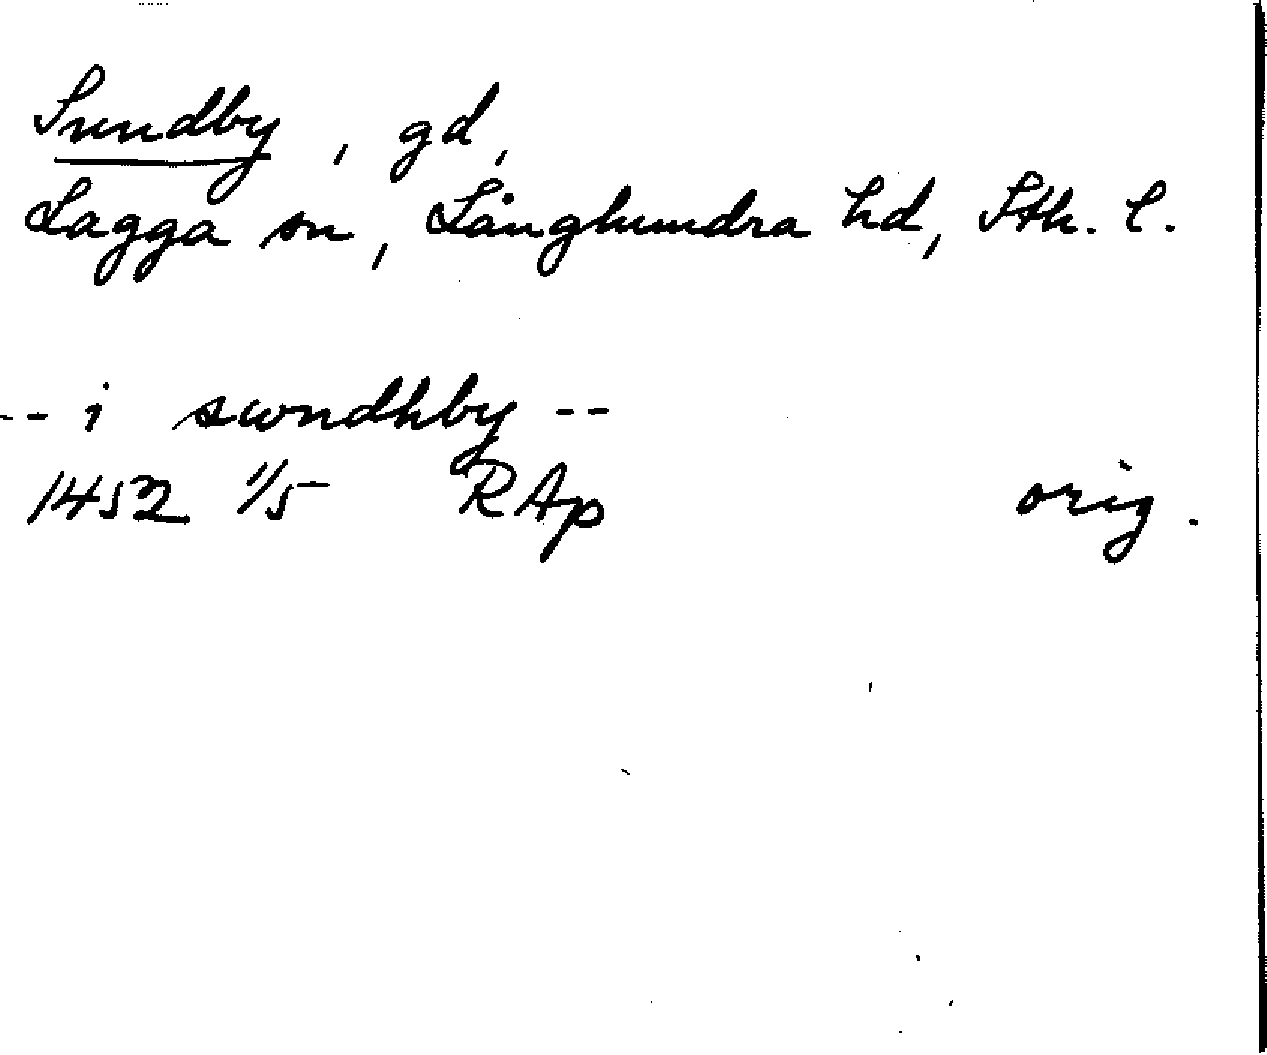 Sundby, gd,
Lagga sn, Långhundra hd, Sth. l.
-- i swndhby --
1452 1/5 RAp orig.